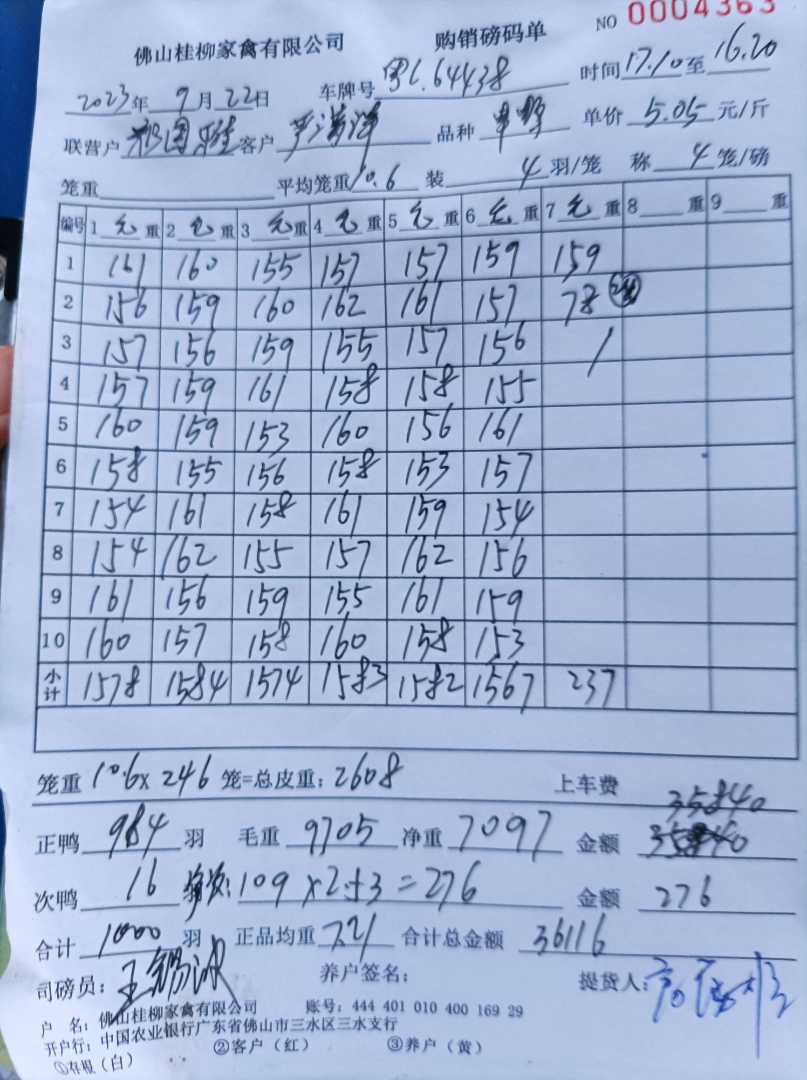 佛山桂柳家禽有限公司 购销磅码单 NO 0004363
2023年 9月 22日 车牌号 粤L.64438 时间 17.10 至 16.20
联营户 客户 严洪洋 品种 单价 5.05 元/斤
笼重 平均笼重 10.6 装 4 羽/笼 称 4 笼/磅
编号 1 毛 重 2 毛 重 3 毛 重 4 毛 重 5 毛 重 6 毛 重 7 毛 重 8 重 9 重
1 161 160 155 157 157 159 159
2 156 159 160 162 161 157 78
3 157 156 159 155 157 156 /
4 157 159 161 158 158 155
5 160 159 153 160 156 161
6 158 155 156 158 153 157
7 154 161 158 161 159 154
8 154 162 155 157 162 156
9 161 156 159 155 161 159
10 160 157 158 160 158 153
小计 1578 1584 1574 1583 1582 1567 237
笼重 10.6 x 246 笼=总皮重: 2608 上车费
35840
正鸭 984 羽 毛重 9705 净重 7097 金额
次鸭 16 109 x 2.53 = 276 金额 276
合计 1000 羽 正品均重 7.21 合计总金额 36116
司磅员: 王锡冰 养户签名: 提货人:
户 名: 佛山桂柳家禽有限公司 账号: 444 401 010 400 169 29
开户行: 中国农业银行广东省佛山市三水区三水支行
①存根(白) ②客户(红) ③养户(黄)